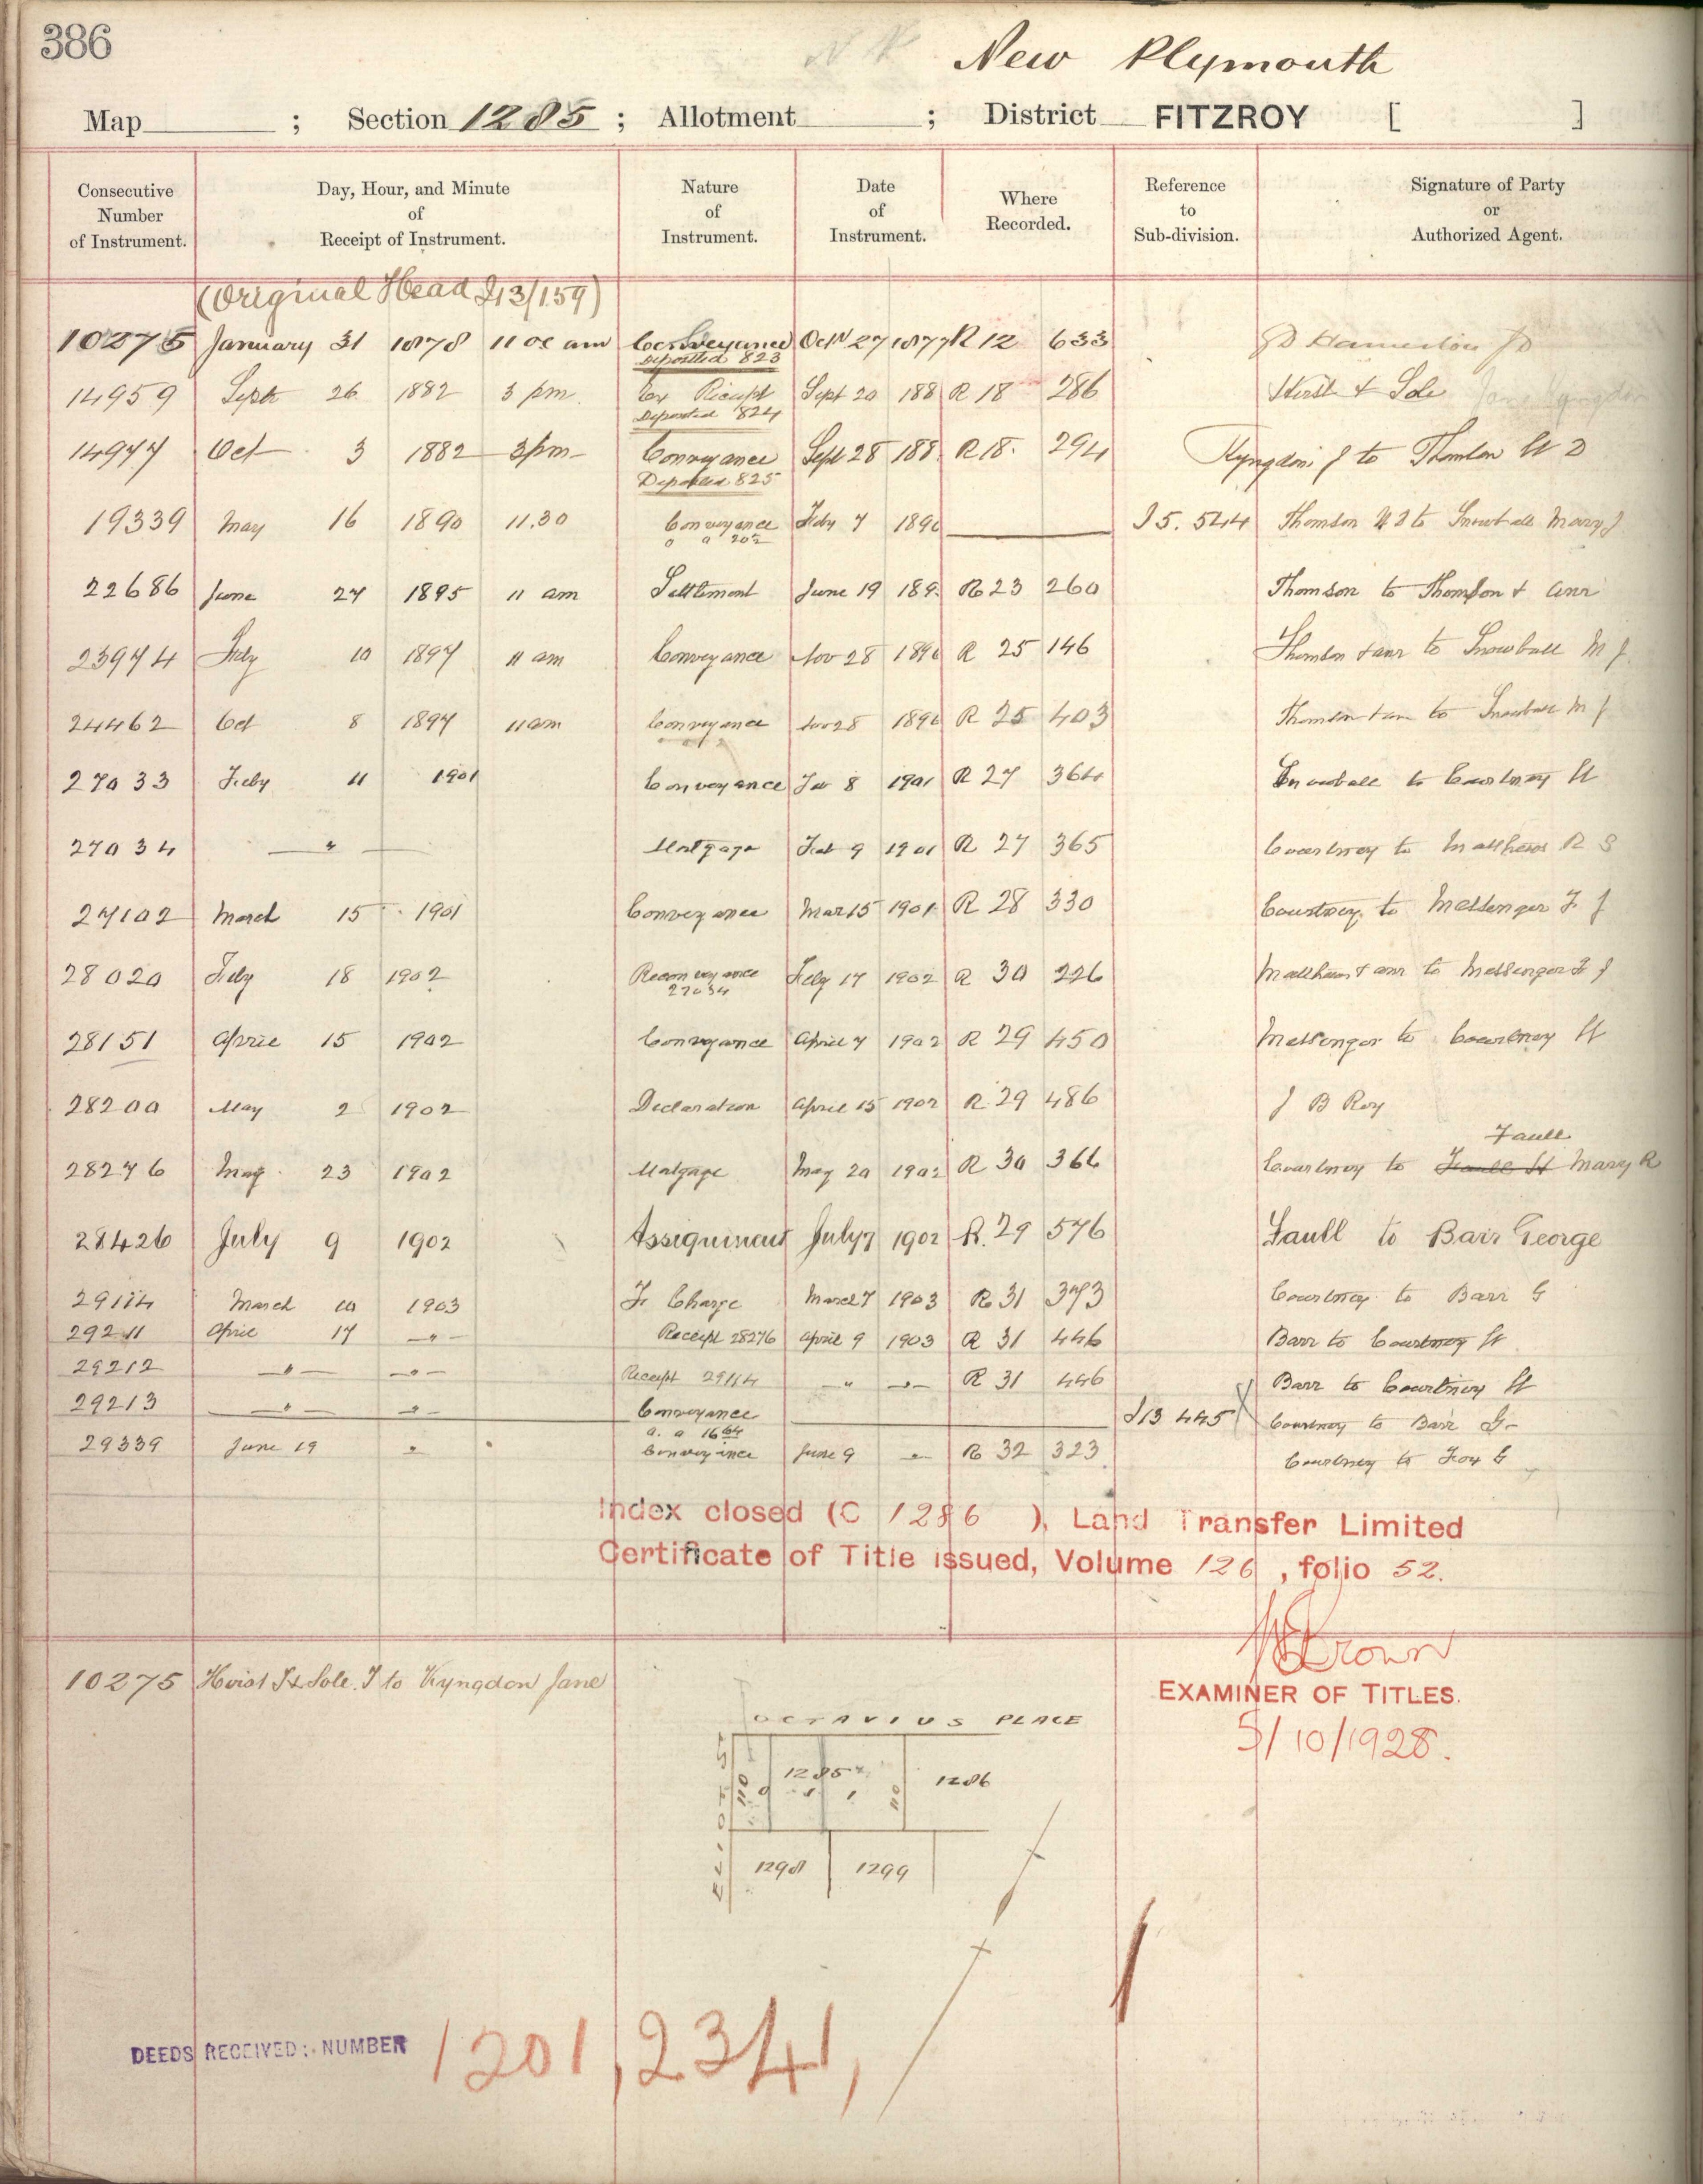 386
New Plymouth
Map ; Section 1285 ; Allotment ; District FITZROY [ ]
Consecutive Number of Instrument. Day, Hour, and Minute of Receipt of Instrument. Nature of Instrument. Date of Instrument. Where Recorded. Reference to Sub-division. Signature of Party or Authorized Agent.
(Original Head I13/159)
10275 January 31 1878 11 am Conveyance Octr 27 1877 R 12 633
Deposited 823
14959 Septr 26 1882 3 pm Receipt Sept 20 188 R 18 286 Hirst & Sole
Deposited 824
14977 Oct 3 1882 3 pm Conveyance Sept 28 188 R 18. 294 Kyngdon J to Thomson W D
Deposited 825
19339 May 16 1890 11.30 Conveyance Feby 7 1890 I 5. 544 Thomson W D to Snowball Mary J
22686 June 27 1895 11 am Settlement June 19 189 R 23 260 Thomson to Thomson & anr
23974 July 10 1897 11 am Conveyance Nov 28 1896 R 25 146 Thomson & anr to Snowball M J
24462 Oct 8 1897 11 am Conveyance Nov 28 1896 R 25 403 Thomson & anr to Snowball M J
27033 Feby 11 1901 Conveyance Feb 8 1901 R 27 364 Snowball to Courtney H
27034 " Mortgage Feb 9 1901 R 27 365 Courtney to Matthews R S
27102 March 15 1901 Conveyance Mar 15 1901 R 28 330 Courtney to Messenger F J
28020 Feby 18 1902 Reconveyance Feby 17 1902 R 30 226 Matthews & anr to Messenger F J
27034
28151 April 15 1902 Conveyance April 7 1902 R 29 450 Messenger to Courtney H
28200 May 2 1902 Declaration April 15 1902 R 29 486 J B Roy
Faull
28276 May 23 1902 Mortgage May 20 1902 R 30 366 Courtney to Faull H Mary R
28426 July 9 1902 Assignment July 7 1902 R. 29 576 Faull to Barr George
29114 March 10 1903 Fr Charge March 7 1903 R 31 373 Courtney to Barr G
29211 April 17 " Receipt 28276 April 9 1903 R 31 446 Barr to Courtney H
29212 " " Receipt 29114 " " R 31 446 Barr to Courtney H
29213 " " Conveyance I 13 495 Courtney to Barr G
29339 June 19 " Conveyance June 9 " R 32 323 Courtney to Fox G
Index closed (C 1286 ), Land Transfer Limited
Certificate of Title issued, Volume 126, folio 52.
Brown
EXAMINER OF TITLES.
5/10/1928.
10275 Hirst T & Sole T to Kyngdon Jane
OCTAVIUS PLACE
ELIOT ST
110 1285 110 1286
1298 1299
DEEDS RECEIVED: NUMBER 1201, 2341,